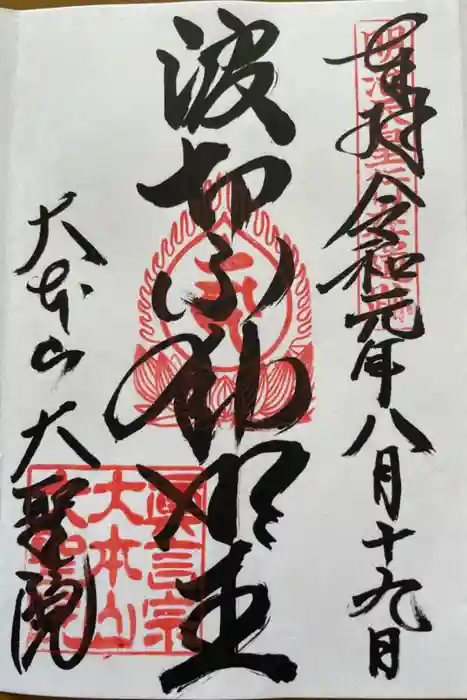 奉拝 令和元年八月十九日
波切不動明王
大本山大聖院
眞言宗
大本山
大聖院